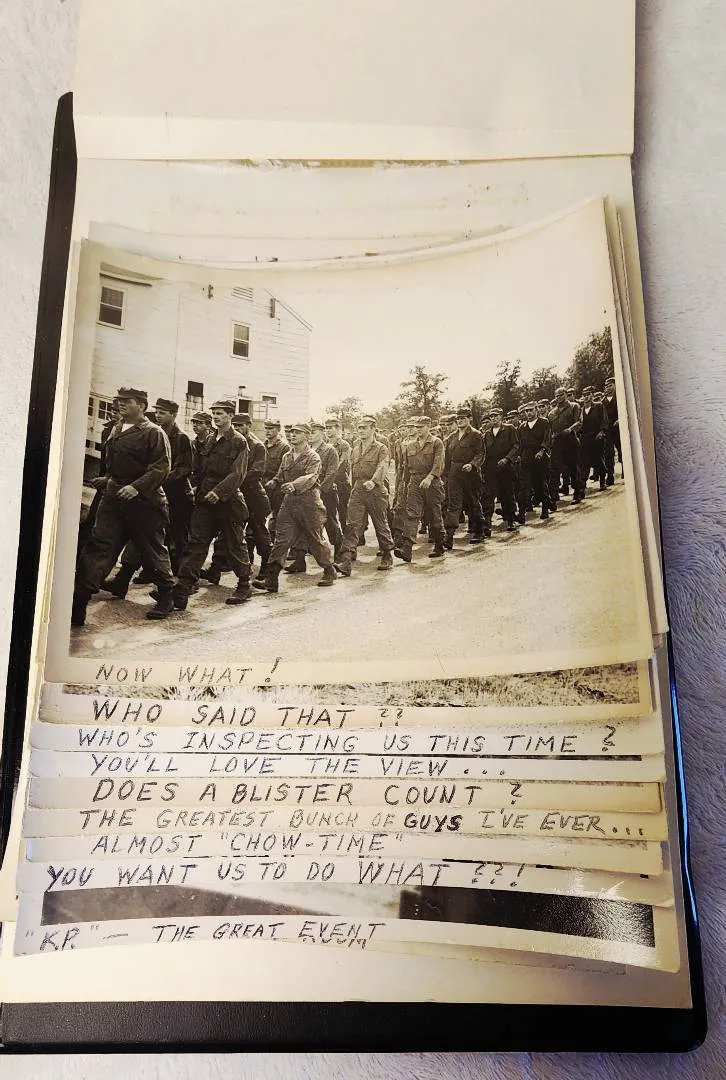 NOW WHAT!
WHO SAID THAT ??
WHO'S INSPECTING US THIS TIME ?
YOU'LL LOVE THE VIEW...
DOES A BLISTER COUNT ?
THE GREATEST BUNCH OF GUYS I'VE EVER...
ALMOST "CHOW-TIME"
YOU WANT US TO DO WHAT ??!
"K.P." — THE GREAT EVENT